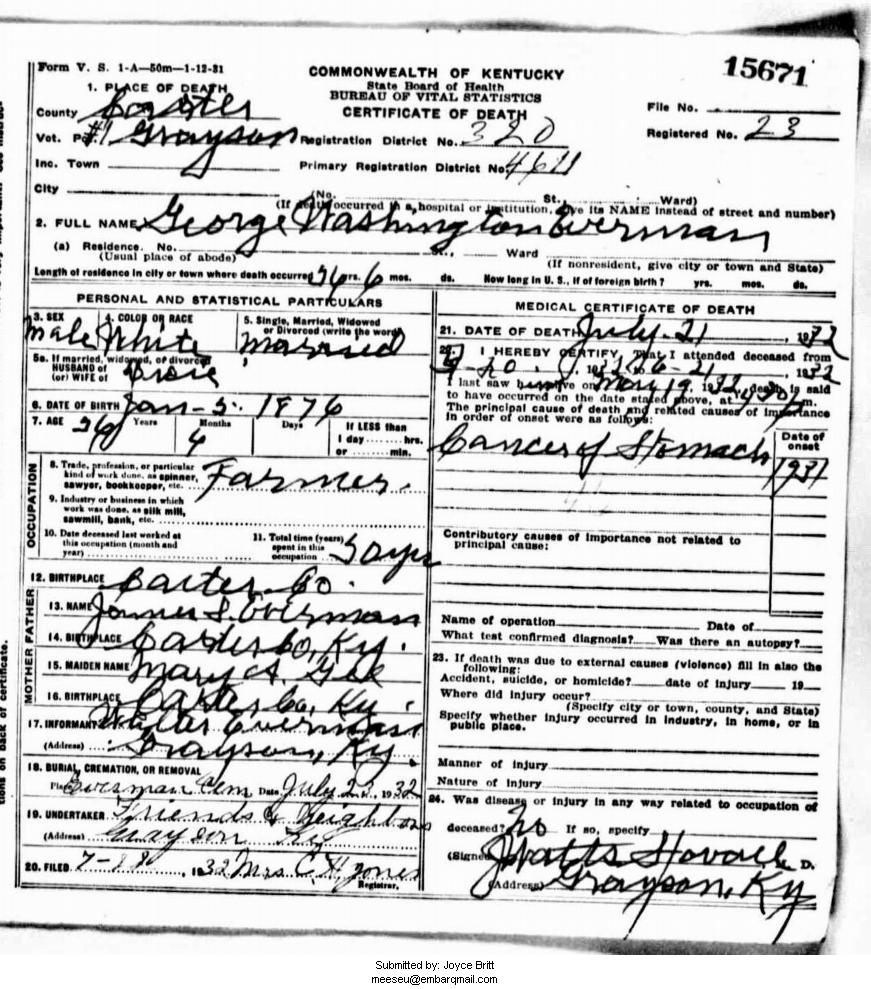 Form V. S. 1-A—50m—1-12-31
15671
COMMONWEALTH OF KENTUCKY
State Board of Health
BUREAU OF VITAL STATISTICS
CERTIFICATE OF DEATH
1. PLACE OF DEATH
County Carter
File No.
Vot. Pct #1 Grayson Registration District No. 320
Registered No. 23
Inc. Town Primary Registration District No. 4611
City (No. St., Ward)
(If death occurred in a hospital or institution, give its NAME instead of street and number)
2. FULL NAME George Washington Everman
(a) Residence. No. St., Ward
(Usual place of abode) (If nonresident, give city or town and State)
Length of residence in city or town where death occurred yrs. 6 mos. ds. How long in U. S., if of foreign birth? yrs. mos. ds.
PERSONAL AND STATISTICAL PARTICULARS
3. SEX 4. COLOR OR RACE 5. Single, Married, Widowed
or Divorced (write the word)
Male White Married
5a. If married, widowed, or divorced
HUSBAND of
(or) WIFE of
6. DATE OF BIRTH Jan-5-1876
7. AGE 56 Years 6 Months Days If LESS than
1 day hrs.
or min.
OCCUPATION
8. Trade, profession, or particular
kind of work done, as spinner,
sawyer, bookkeeper, etc. Farmer.
9. Industry or business in which
work was done, as silk mill,
sawmill, bank, etc.
10. Date deceased last worked at
this occupation (month and
year)
11. Total time (years)
spent in this
occupation
12. BIRTHPLACE Carter Co.
FATHER
13. NAME James S. Everman
14. BIRTHPLACE Carter Co, Ky.
MOTHER
15. MAIDEN NAME Mary A. Gee
16. BIRTHPLACE Carter Co, Ky.
17. INFORMANT Everman
(Address) Grayson, Ky.
18. BURIAL, CREMATION, OR REMOVAL
Place Everman Cem Date July 22, 1932
19. UNDERTAKER Friends & Neighbors
(Address) Grayson Ky
20. FILED 1932 Mrs C. H. Jones
Registrar.
MEDICAL CERTIFICATE OF DEATH
21. DATE OF DEATH July-21, 1932
22. I HEREBY CERTIFY, That I attended deceased from
1932
I last saw him alive on May 19, 1932, death is said
to have occurred on the date stated above, at m.
The principal cause of death and related causes of importance
in order of onset were as follows:
Date of
onset
Cancer of Stomach 1931
Contributory causes of importance not related to
principal cause:
Name of operation Date of
What test confirmed diagnosis? Was there an autopsy?
23. If death was due to external causes (violence) fill in also the
following:
Accident, suicide, or homicide? date of injury 19
Where did injury occur?
(Specify city or town, county, and State)
Specify whether injury occurred in industry, in home, or in
public place.
Manner of injury
Nature of injury
24. Was disease or injury in any way related to occupation of
deceased? No If so, specify
(Signed) J Watts Stovall M. D.
(Address) Grayson, Ky
tions on back of certificate.
Submitted by: Joyce Britt
meeseu@embarqmail.com